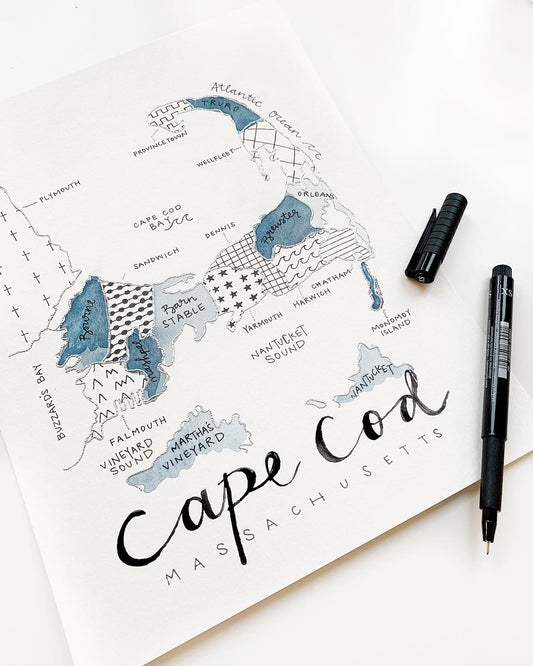 Atlantic Ocean
TRURO
PROVINCETOWN
WELLFLEET
PLYMOUTH
ORLEANS
CAPE COD
BAY
DENNIS
Brewster
SANDWICH
CHATHAM
HARWICH
Bourne
Barn
STABLE
YARMOUTH
MONOMOY
ISLAND
NANTUCKET
SOUND
Mashpee
BUZZARD'S BAY
NANTUCKET
FALMOUTH
VINEYARD
SOUND
MARTHA'S
VINEYARD
Cape Cod
MASSACHUSETTS
S
XS